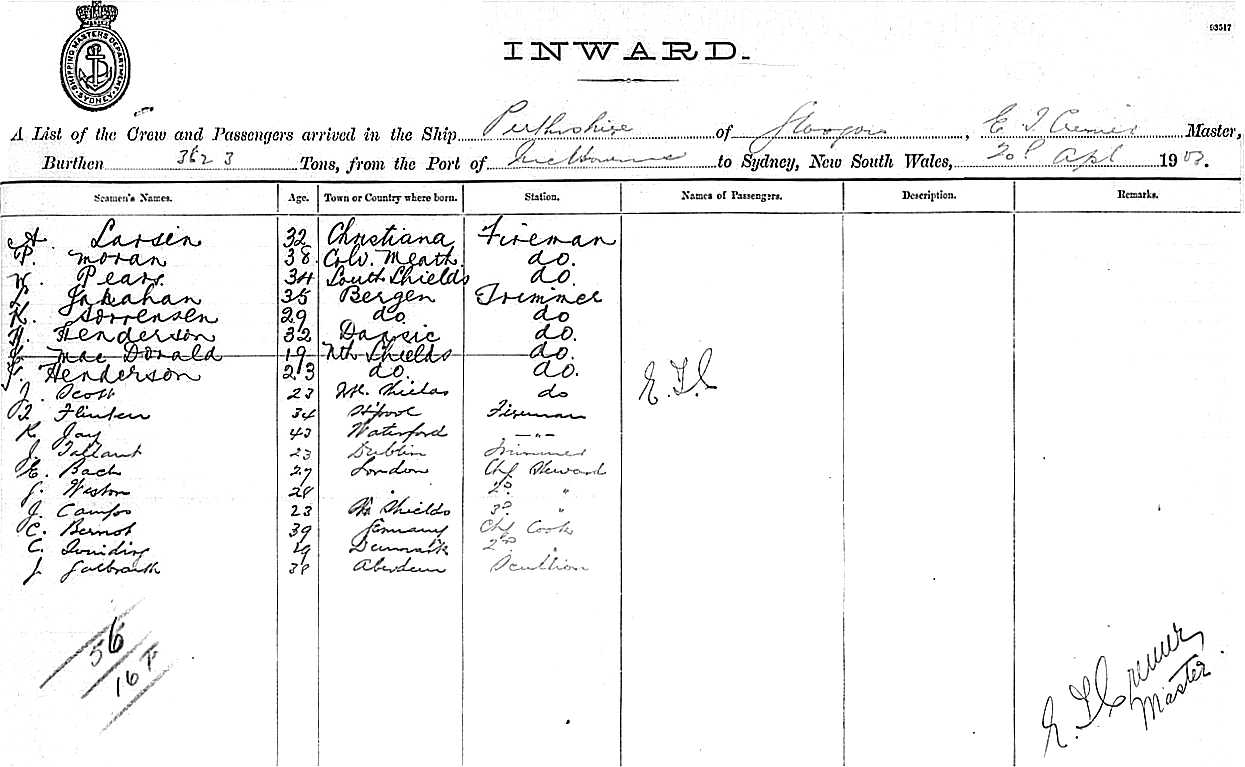 SHIPPING MASTERS DEPARTMENT SYDNEY
93517
INWARD.
A List of the Crew and Passengers arrived in the Ship Perthshire of Glasgow, E T Cremer Master,
Burthen 3623 Tons, from the Port of Melbourne to Sydney, New South Wales, 20th Apl 190
Seamen's Names. Age. Town or Country where born. Station. Names of Passengers. Description. Remarks.
A. Larsen 32 Christiana Fireman
P. Moran 38 Meath do.
Pears 34 South Shields do.
35 Bergen Trimmer
K. Sorrensen 29 do. do
H. Henderson 32 do.
Mac Donald 19 Nth Shields do.
Henderson 23 do. do.
J. Scott 23 Nth. Shields do
34 Fireman
K. Jay 43 Waterford —"—
J. Tallant 23 Dublin Trimmer
E. Bach 27 London Chf Steward
G. Weston 28 " 2d "
J. Campo 23 Shields 3d "
C. Bernot 39 Germany Chf Cook
C. 19 Denmark 2nd "
J. Galbraith 38 Aberdeen Scullion
E.T.C
56
16 P
E. T. Cremer
Master